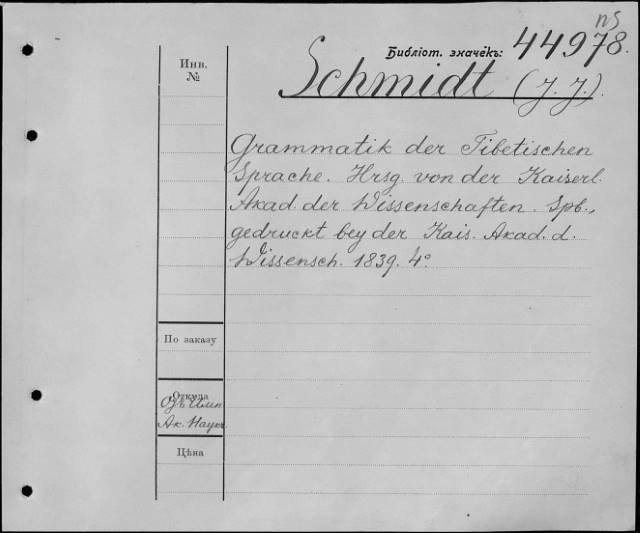 ns
Библіот. значекъ: 44978.
Инв.
№
Schmidt (J. J.).
Grammatik der Tibetischen
Sprache. Hrsg. von der Kaiserl.
Akad. der Wissenschaften. Spb.,
gedruckt bey der Kais. Akad. d.
Wissensch. 1839. 4°
По заказу
Откуда
Ак. Наукъ.
Цѣна